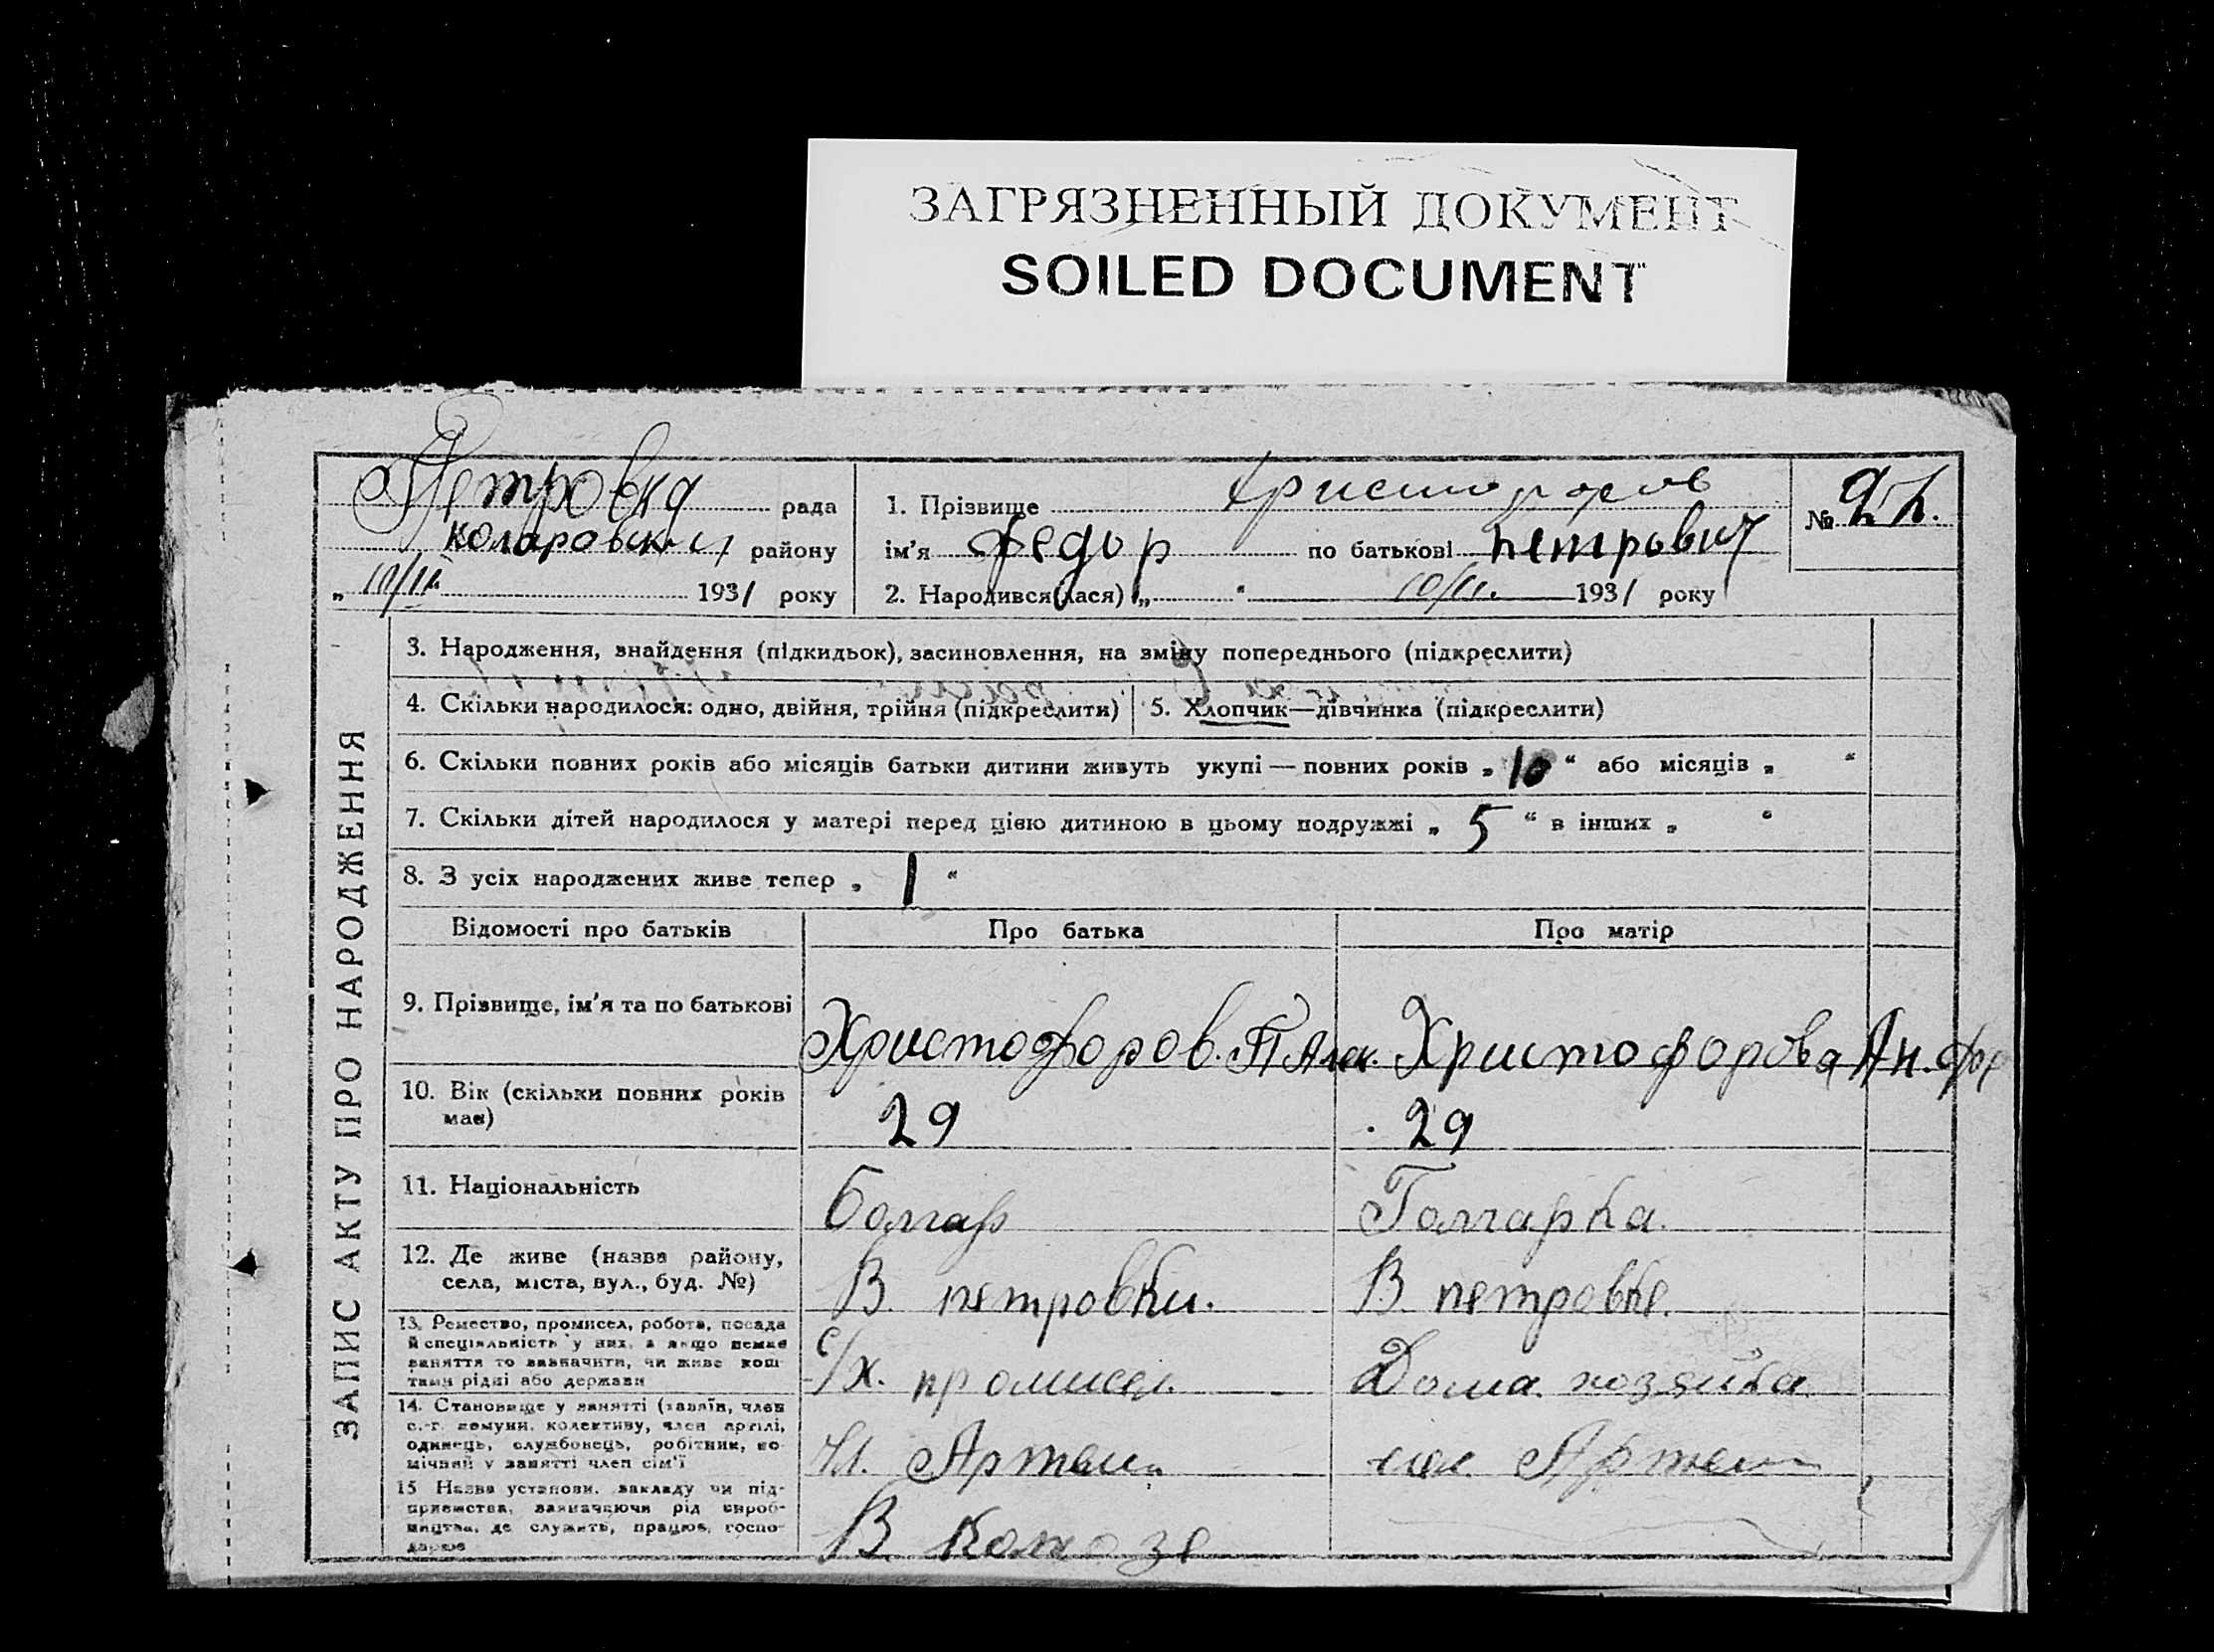 ЗАГРЯЗНЕННЫЙ ДОКУМЕНТ
SOILED DOCUMENT
Петровка рада
Коларовский району
1931 року
1. Прізвище Христофоров
ім’я Федор по батькові Петрович
2. Народився(лася) „ “ 1931 року
№
ЗАПИС АКТУ ПРО НАРОДЖЕННЯ
3. Народження, знайдення (підкидьок), засиновлення, на зміну попереднього (підкреслити)
4. Скільки народилося: одно, двійня, трійня (підкреслити) 5. Хлопчик—дівчинка (підкреслити)
6. Скільки повних років або місяців батьки дитини живуть укупі — повних років „ 10 “ або місяців „ “
7. Скільки дітей народилося у матері перед цією дитиною в цьому подружжі „ 5 “ в інших „ “
8. З усіх народжених живе тепер „ 1 “
Відомості про батьків Про батька Про матір
9. Прізвище, ім’я та по батькові
Христофоров. П Алек. Христофорова Ан.
10. Вік (скільки повних років
має)
29 29
11. Національність
Болгар Голгарка.
12. Де живе (назва району,
села, міста, вул., буд. №)
В. петровки. В. петровке.
13. Ремество, промисел, робота, посада
й спеціяльність у них, а якщо немає
заняття то зазначити, чи живе кош-
тами рідні або держави
С/Х. промисел. Дома. хозяйка
14. Становище у занятті (хазяїн, член
с.-г. комуни, колективу, член артілі,
одинець, службовець, робітник, по-
мічний у занятті член сім’ї
Чл. Артели
Артели
15 Назва установи, закладу чи під-
приємства, зазначаючи рід вироб-
ництва, де служить, працює, госпо-
дарює
В Колхозе